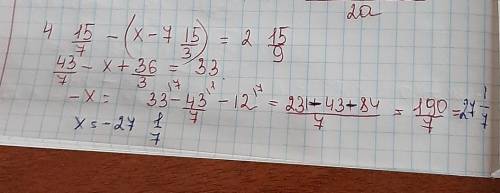 2a
4 15/7 - (x - 7 15/3) = 2 15/9
43/7 - x + 36/3 = 33
-x = 33 - 43/7 - 12 = 231-43+84/7 = 190/7 = 27 1/7
x = -27 1/7